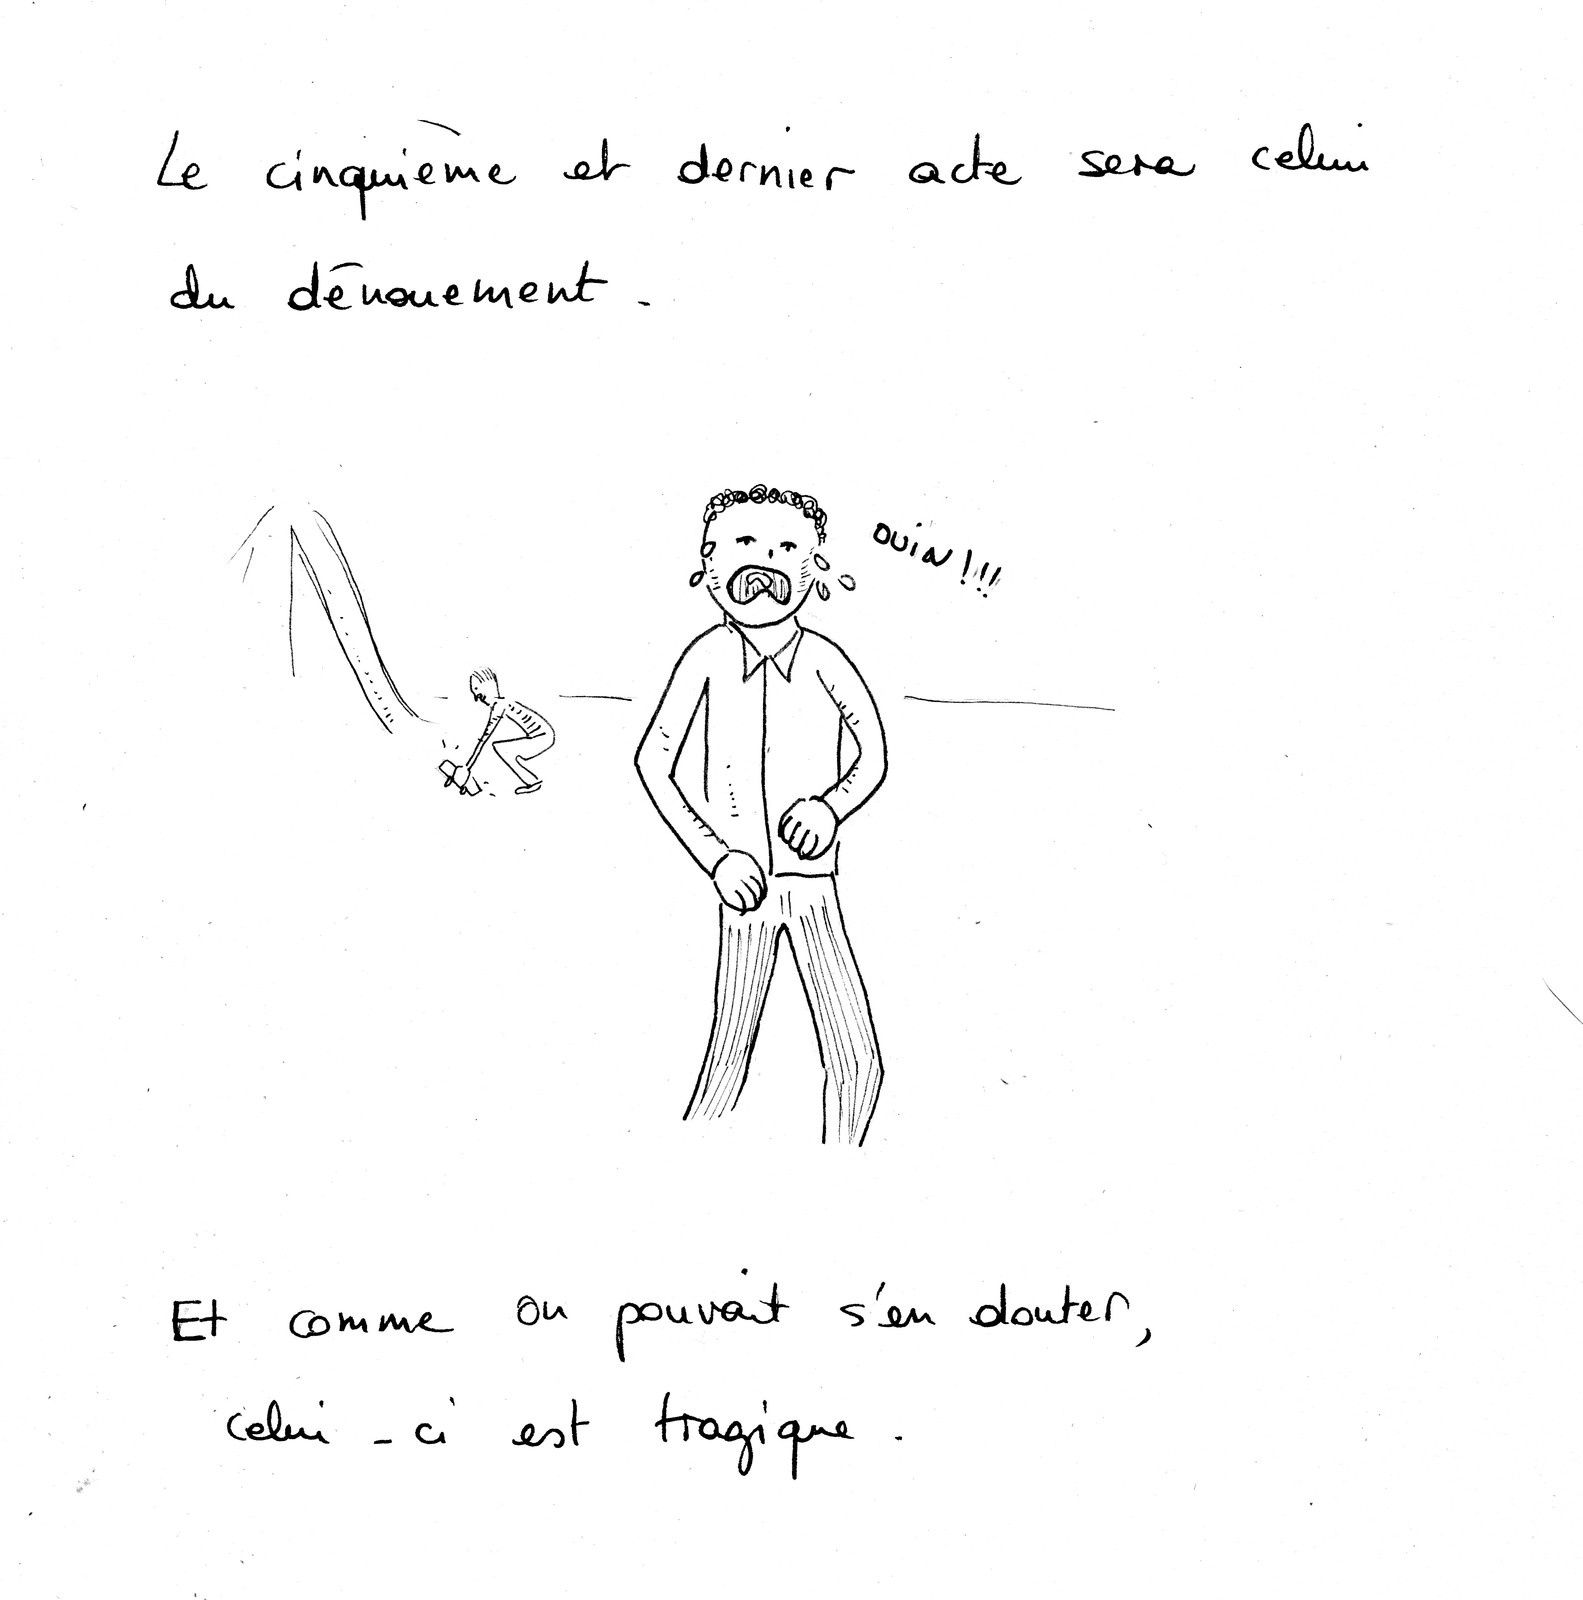 Le cinquième et dernier acte sera celui
du dénouement.
OUIN !!!
Et comme on pouvait s'en douter,
celui-ci est tragique.